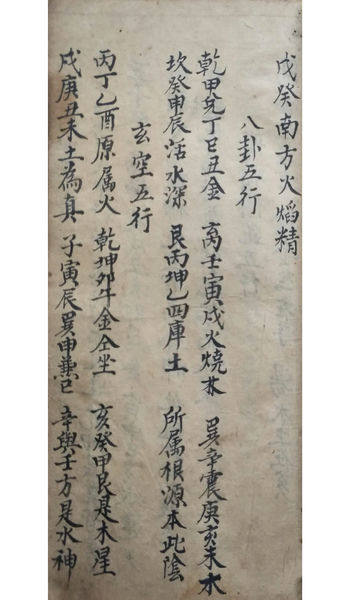 戊癸南方火焰精
八卦五行
乾甲兌丁巳丑金 离壬寅戌火燒林 巽辛震庚亥未木
坎癸申辰活水深 艮丙坤乙四庫土 所属根源本此陰
玄空五行
丙丁乙酉原属火 乾坤卯午金仝坐 亥癸甲艮是木星
戌庚丑未土為真 子寅辰巽申兼巳 辛與壬方是水神